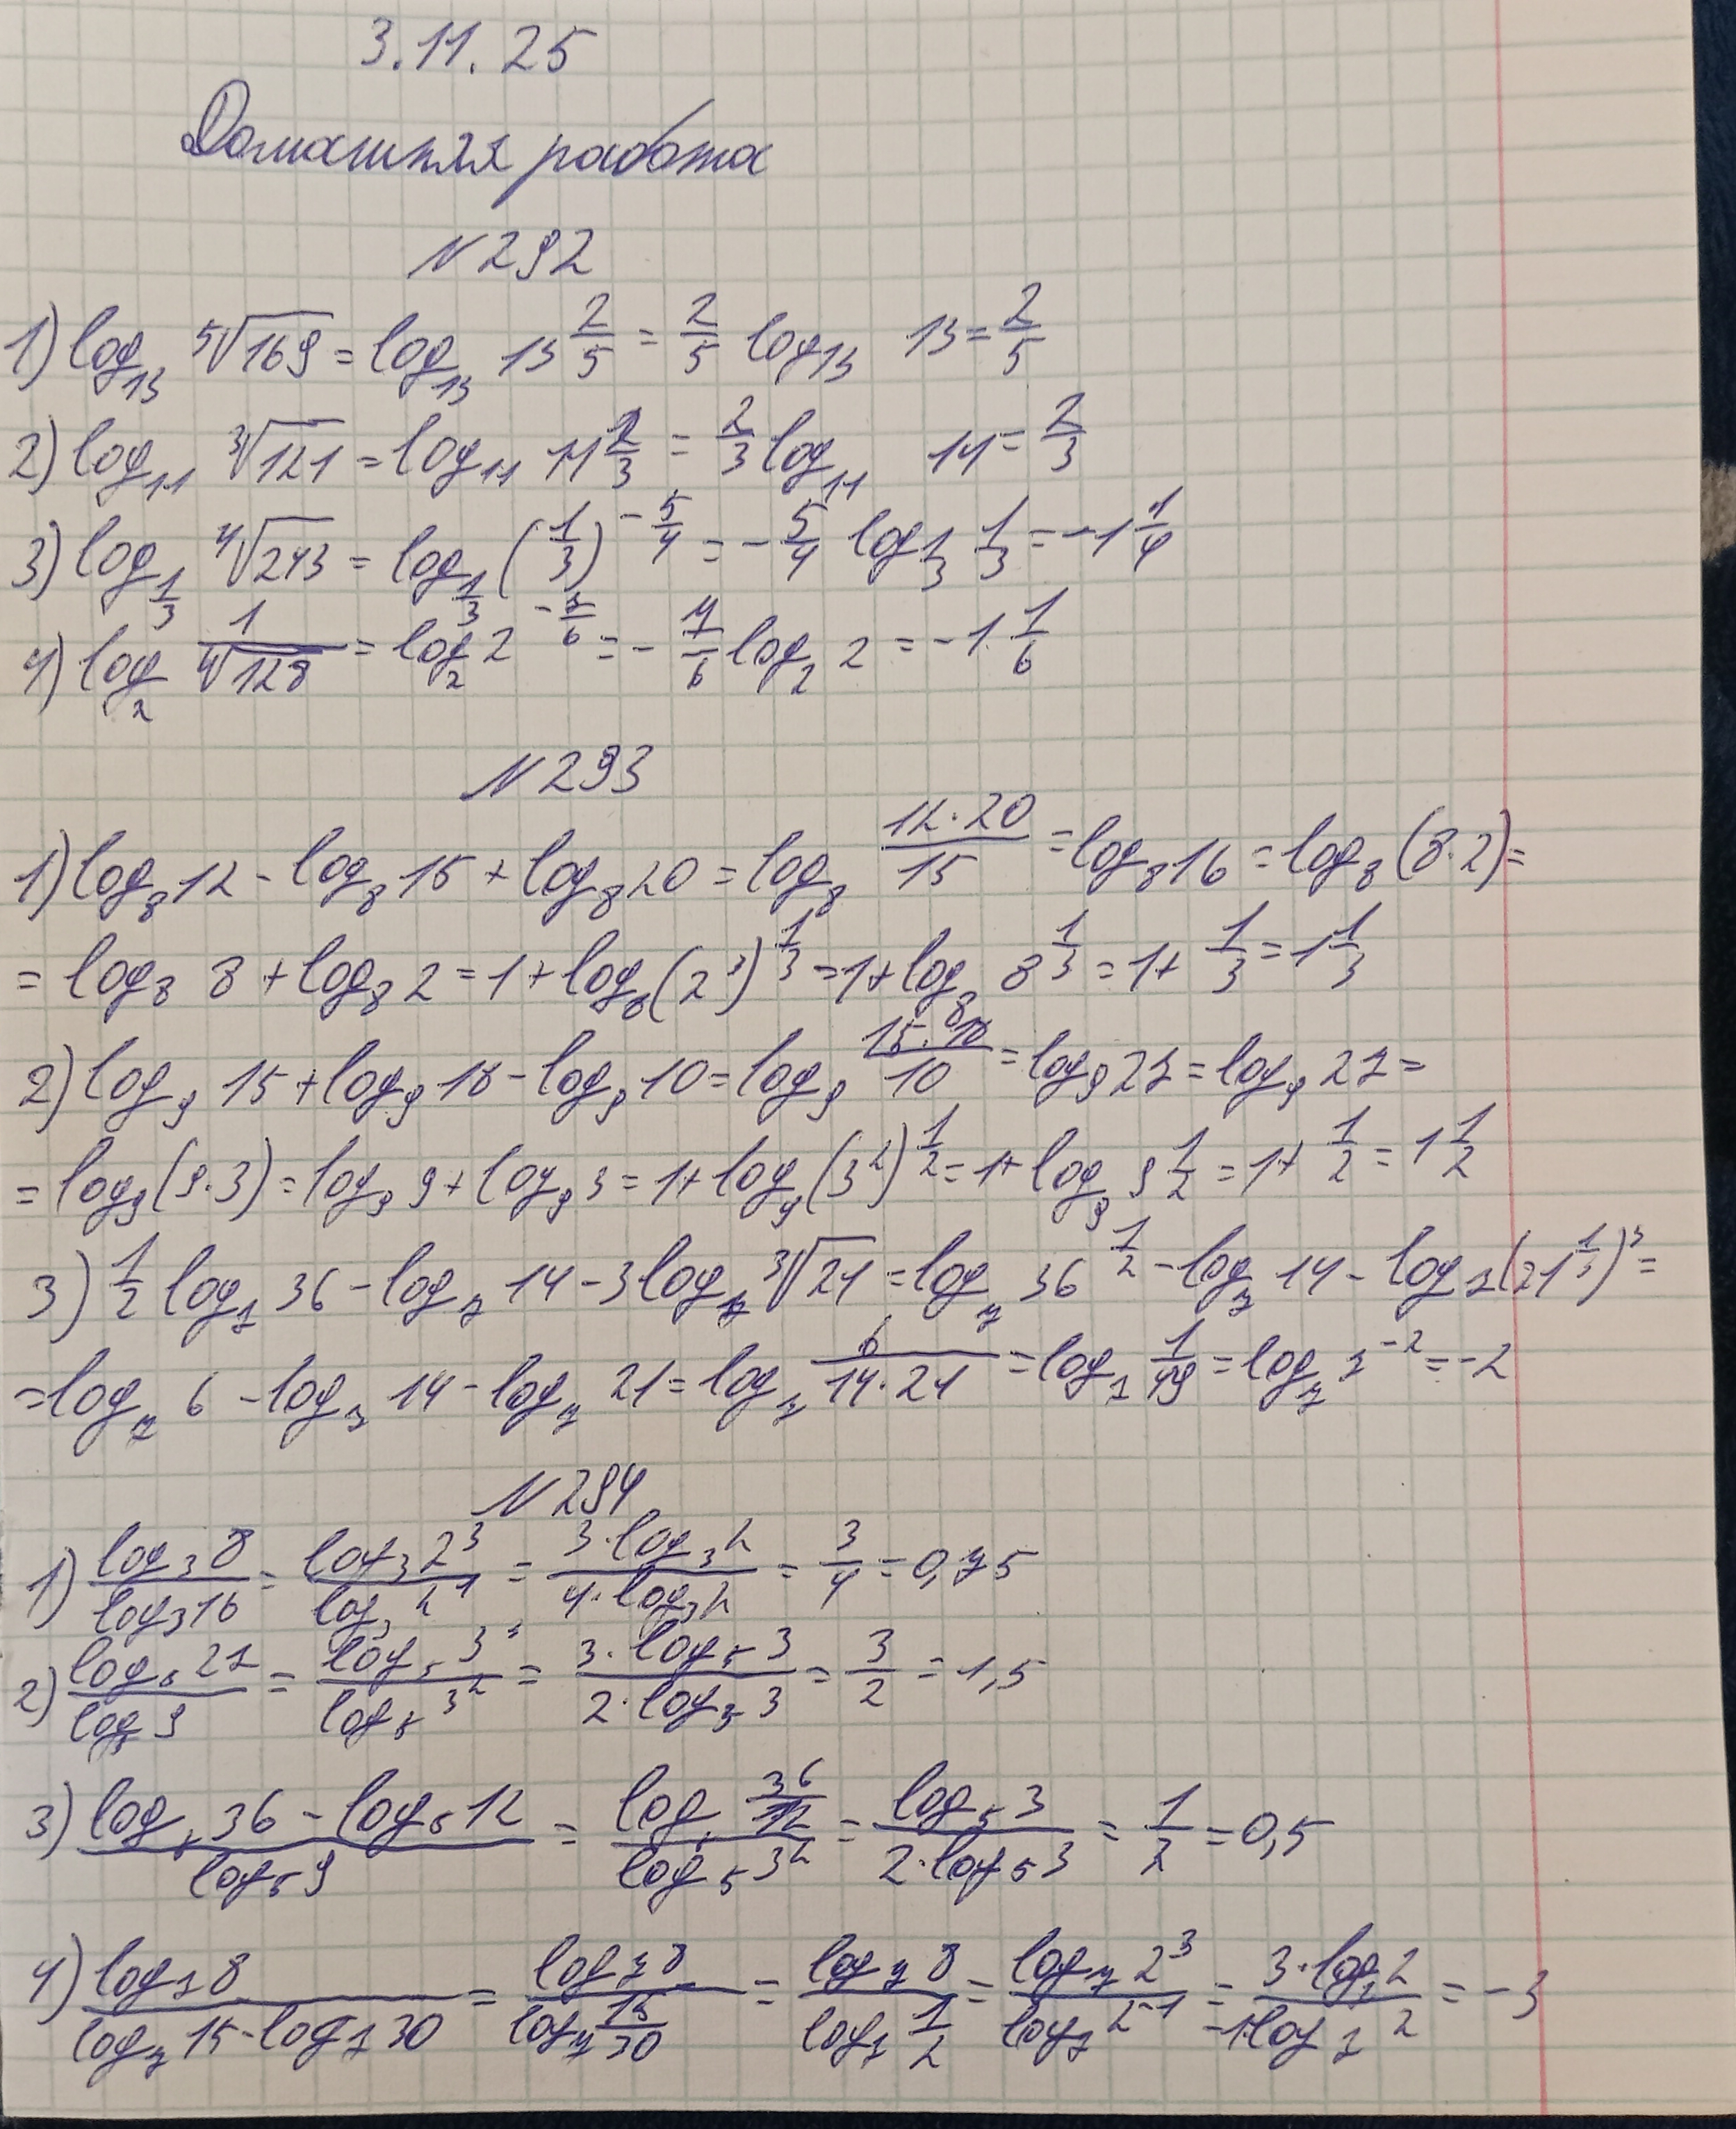 3.11.25
Домашняя работа
№292
1) log₁₃ ⁵√169 = log₁₃ 13^(2/5) = 2/5 log₁₃ 13 = 2/5
2) log₁₁ ³√121 = log₁₁ 11^(2/3) = 2/3 log₁₁ 11 = 2/3
3) log_(1/3) ⁴√243 = log_(1/3) (1/3)^(-5/4) = -5/4 log_(1/3) 1/3 = -1 1/4
4) log₂ 1/⁶√128 = log₂ 2^(-7/6) = -7/6 log₂ 2 = -1 1/6
№293
1) log₈ 12 - log₈ 15 + log₈ 20 = log₈ (12·20)/15 = log₈ 16 = log₈ (8·2) =
= log₈ 8 + log₈ 2 = 1 + log₈ (2³)^(1/3) = 1 + log₈ 8^(1/3) = 1 + 1/3 = 1 1/3
2) log₉ 15 + log₉ 18 - log₉ 10 = log₉ (15·18)/10 = log₉ 27 = log₉ 27 =
= log₉ (9·3) = log₉ 9 + log₉ 3 = 1 + log₉ (3²)^(1/2) = 1 + log₉ 9^(1/2) = 1 + 1/2 = 1 1/2
3) 1/2 log₇ 36 - log₇ 14 - 3 log₇ ³√21 = log₇ 36^(1/2) - log₇ 14 - log₇ (21^(1/3))³ =
= log₇ 6 - log₇ 14 - log₇ 21 = log₇ 6/(14·21) = log₇ 1/49 = log₇ 7^(-2) = -2
№294
1) (log₃ 8)/(log₃ 16) = (log₃ 2³)/(log₃ 2⁴) = (3·log₃ 2)/(4·log₃ 2) = 3/4 = 0,75
2) (log₅ 27)/(log₅ 9) = (log₅ 3³)/(log₅ 3²) = (3·log₅ 3)/(2·log₅ 3) = 3/2 = 1,5
3) (log₅ 36 - log₅ 12)/(log₅ 9) = (log₅ 36/12)/(log₅ 3²) = (log₅ 3)/(2·log₅ 3) = 1/2 = 0,5
4) (log₇ 8)/(log₇ 15 - log₇ 30) = (log₇ 8)/(log₇ 15/30) = (log₇ 8)/(log₇ 1/2) = (log₇ 2³)/(log₇ 2^(-1)) = (3·log₇ 2)/(-1·log₇ 2) = -3